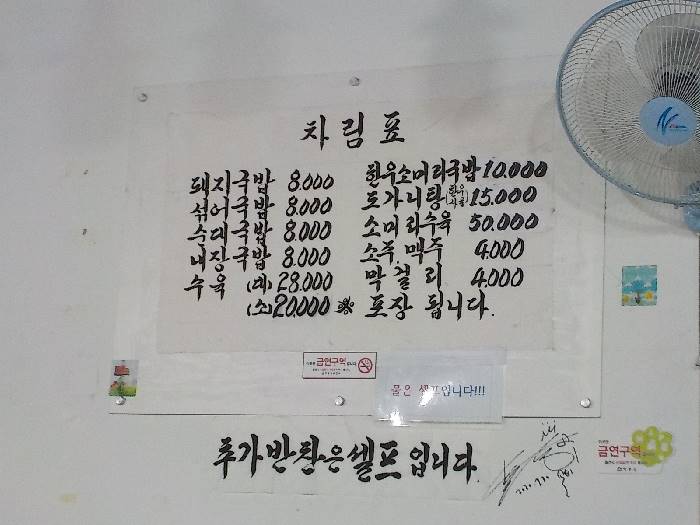 차림표
돼지국밥 8.000
섞어국밥 8.000
순대국밥 8.000
내장국밥 8.000
수육 (대) 28.000
(소) 20.000
한우소머리국밥 10.000
도가니탕 (한우 15.000
소머리수육 50.000
소주. 맥주 4.000
막걸리 4.000
※ 포장 됩니다.
금연구역
물은 셀프입니다!!!
추가반찬은셀프입니다.
금연구역